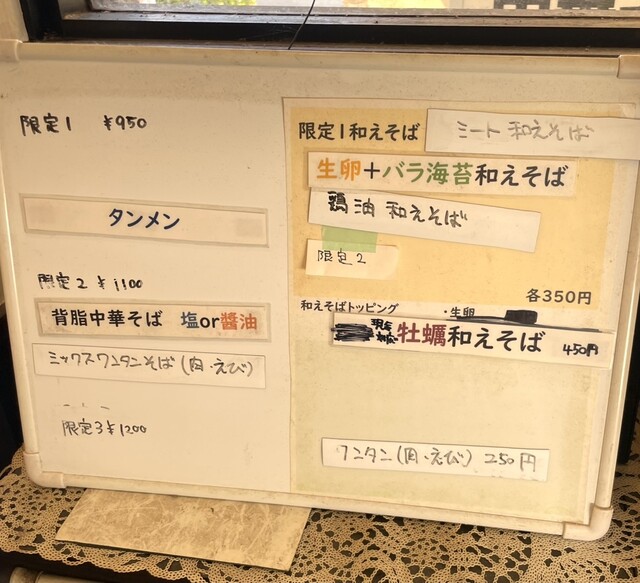 限定1 ¥950
タンメン
限定2 ¥1100
背脂中華そば 塩or醬油
ミックスワンタンそば(肉・えび)
限定3 ¥1200
限定1和えそば
ミート 和えそば
生卵+バラ海苔和えそば
鶏油 和えそば
限定2
各350円
和えそばトッピング
・生卵
現金
牡蠣和えそば 450円
ワンタン(肉・えび) 250円